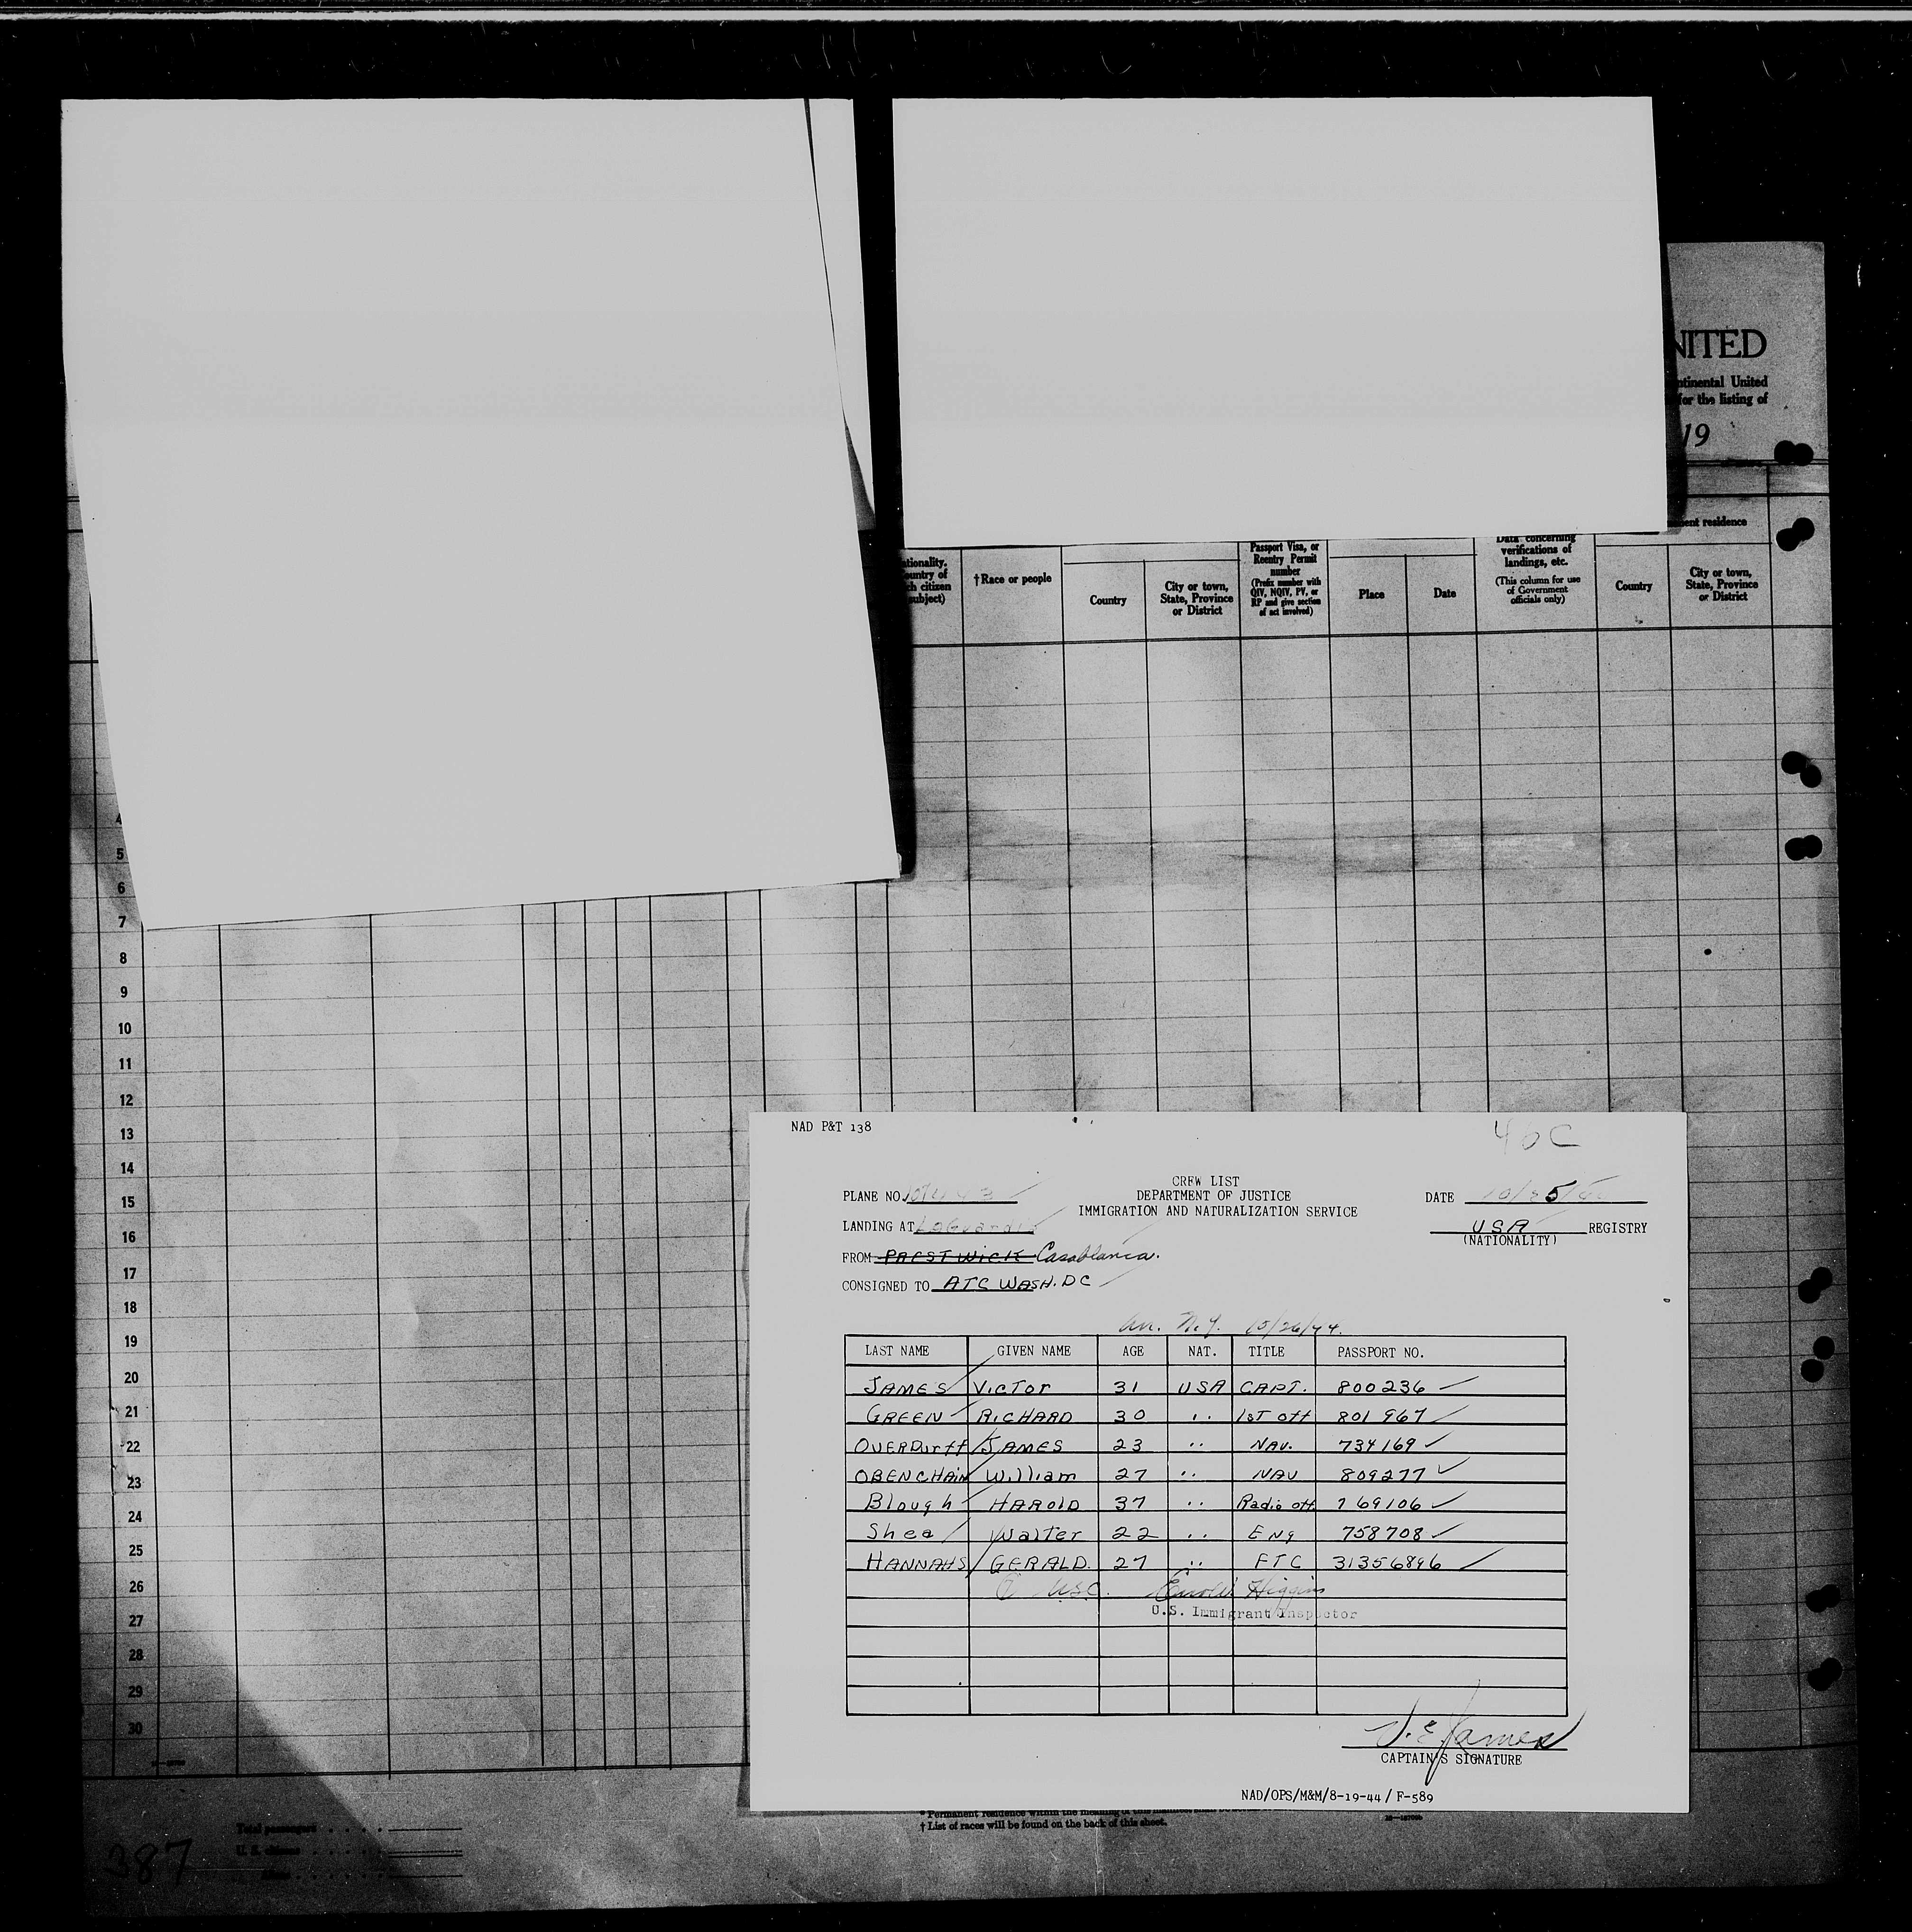 NITED
ntinental United
for the listing of
19
nent residence
ationality.
ountry of
ch citizen
subject)
† Race or people
Country
City or town,
State, Province
or District
Passport Visa, or
Reentry Permit
number
(Prefix number with
QIV, NQIV, PV, or
RP and give section
of act involved)
Place
Date
Data concerning
verifications of
landings, etc.
(This column for use
of Government
officials only)
Country
City or town,
State, Province
or District
4
5
6
7
8
9
10
11
12
13
14
15
16
17
18
19
20
21
22
23
24
25
26
27
28
29
30
NAD P&T 138
40C
CREW LIST
DEPARTMENT OF JUSTICE
IMMIGRATION AND NATURALIZATION SERVICE
PLANE NO.
DATE
LANDING AT LaGuardia
USA REGISTRY
(NATIONALITY)
FROM PRESTWICK Casablanca.
CONSIGNED TO ATC WASH. DC
arr. N.Y. 10/26/44.
LAST NAME GIVEN NAME AGE NAT. TITLE PASSPORT NO.
JAMES VICTOR 31 USA CAPT. 800236
GREEN RICHARD 30 " 1ST off 801967
OVERDurff JAMES 23 " NAV. 734169
OBENCHAIN William 27 " NAV 809277
Blough HAROLD 37 " Radio off 769106
Shea Walter 22 " ENg 758708
HANNAHS GERALD. 27 " FTC 31356896
USC. Higgins
U.S. Immigrant Inspector
V.E. James
CAPTAIN'S SIGNATURE
NAD/OPS/M&M/8-19-44/ F-589
* Permanent residence within the meaning of this manifest, shall be
† List of races will be found on the back of this sheet.
Total passengers
U. S. citizens
387